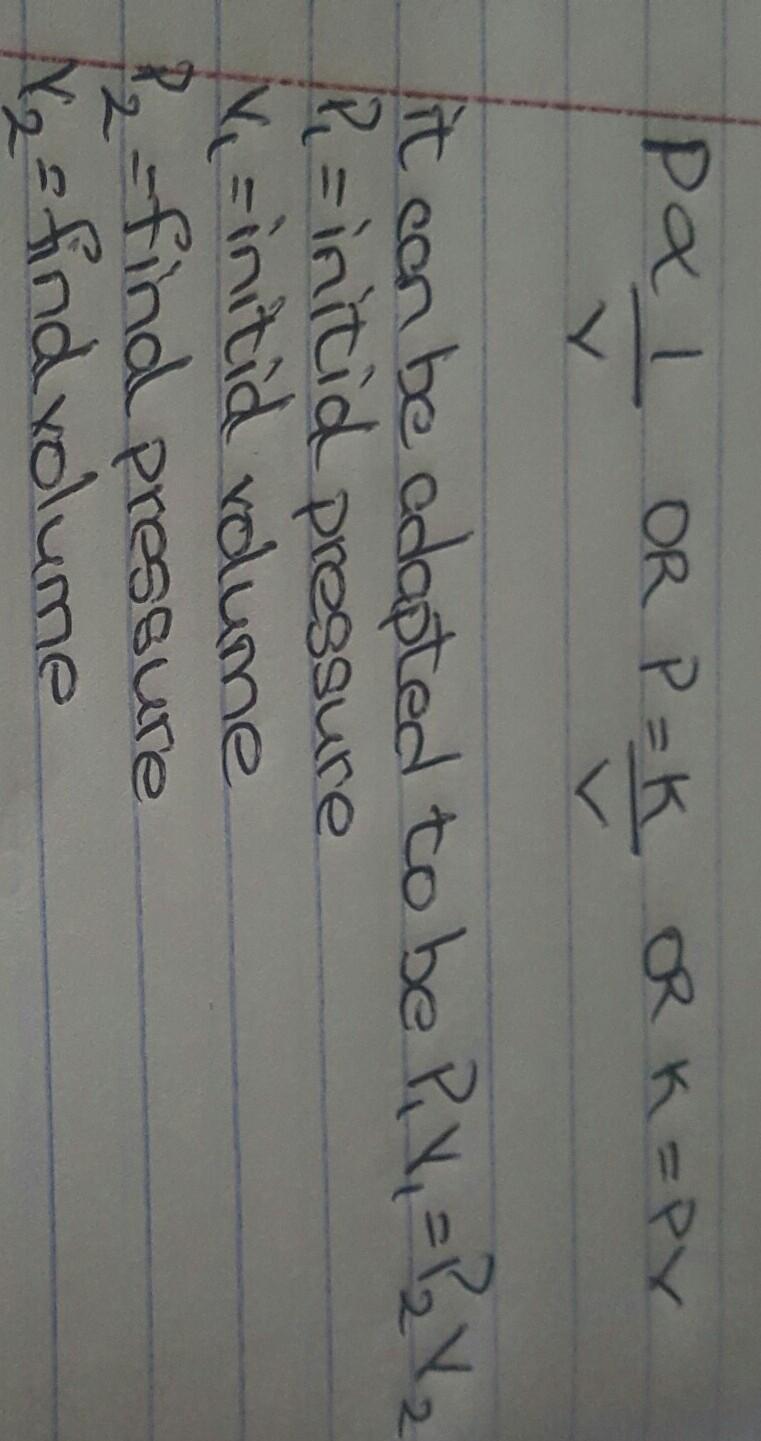 P α 1/V OR P = K/V OR K = PV
it can be adapted to be P₁V₁ = P₂V₂
P₁ = initial pressure
V₁ = initial volume
P₂ = find pressure
V₂ = find volume